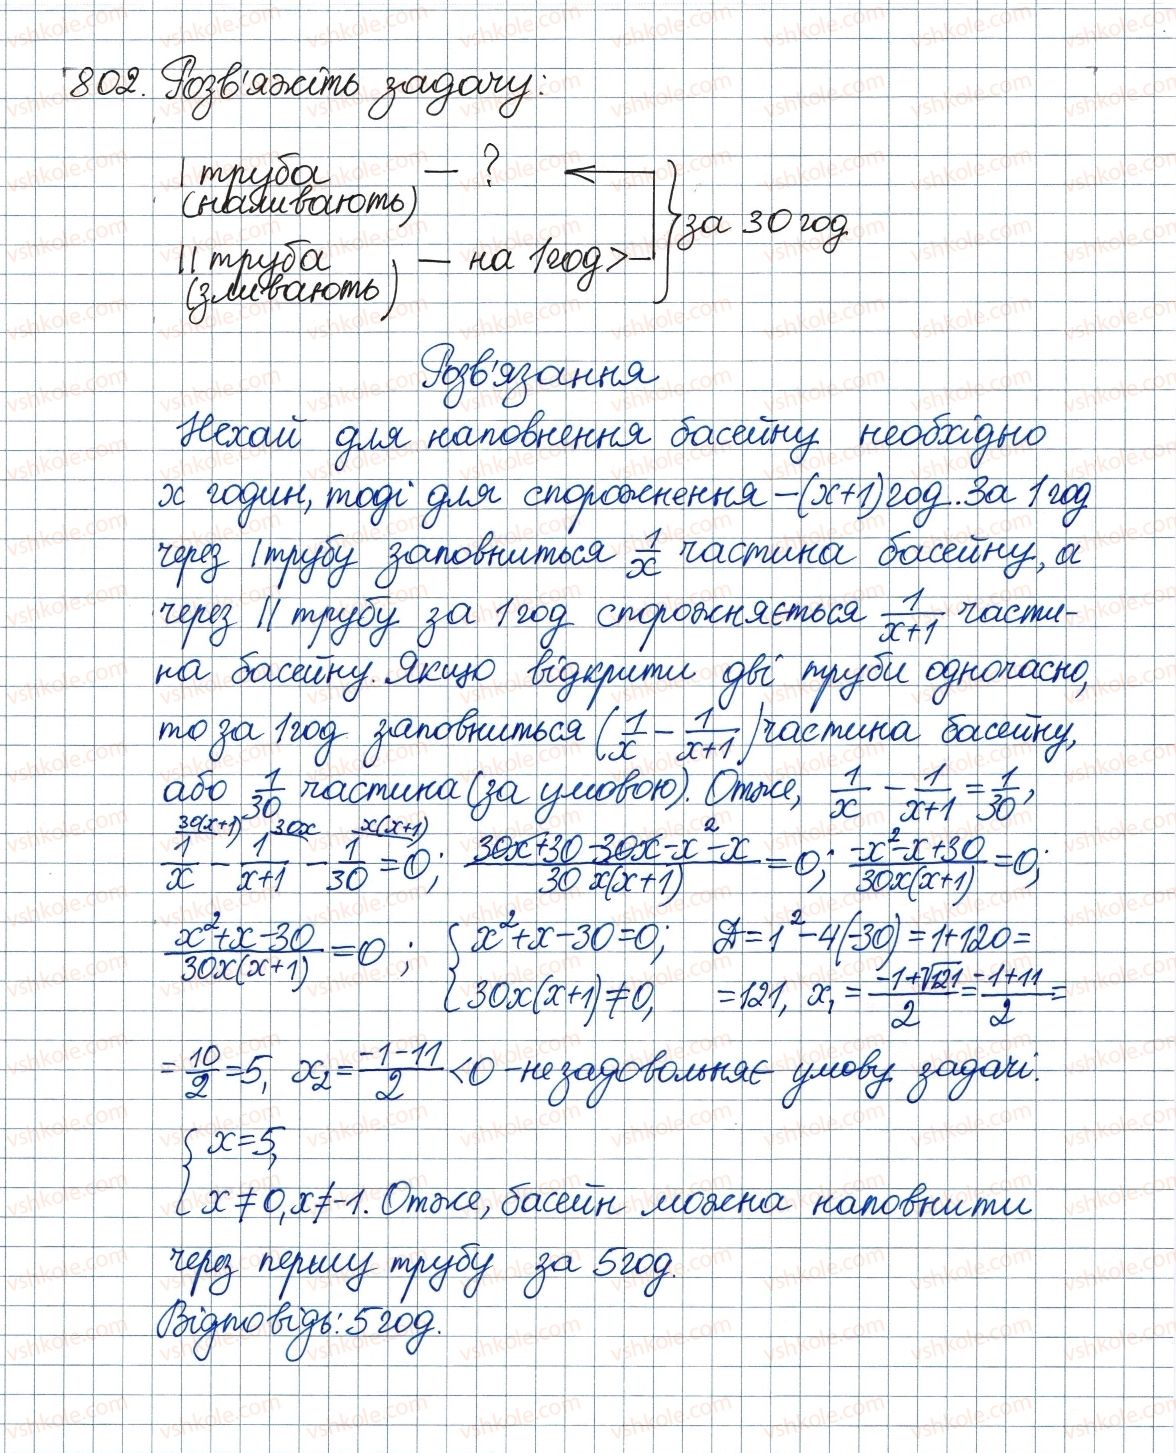 802. Розв'яжіть задачу:
I труба — ?
(наливають)
за 30 год
II труба — на 1 год >
(зливають)
Розв'язання
Нехай для наповнення басейну необхідно
x годин, тоді для спорожнення – (x+1) год. За 1 год
через I трубу заповниться 1/x частина басейну, а
через II трубу за 1 год спорожняється 1/(x+1) части-
на басейну. Якщо відкрити дві труби одночасно,
то за 1 год заповниться (1/x − 1/(x+1)) частина басейну,
або 1/30 частина (за умовою). Отже, 1/x − 1/(x+1) = 1/30;
30(x+1) 30x x(x+1)
1/x − 1/(x+1) − 1/30 = 0; (30x+30−30x−x²−x)/(30x(x+1)) = 0; (−x²−x+30)/(30x(x+1)) = 0;
(x²+x−30)/(30x(x+1)) = 0; { x²+x−30=0; Д = 1²−4(−30) = 1+120 =
30x(x+1)≠0, = 121, x₁ = (−1+√121)/2 = (−1+11)/2 =
= 10/2 = 5, x₂ = (−1−11)/2 < 0 – незадовольняє умову задачі.
{ x=5,
x≠0, x≠−1. Отже, басейн можна наповнити
через першу трубу за 5 год.
Відповідь: 5 год.